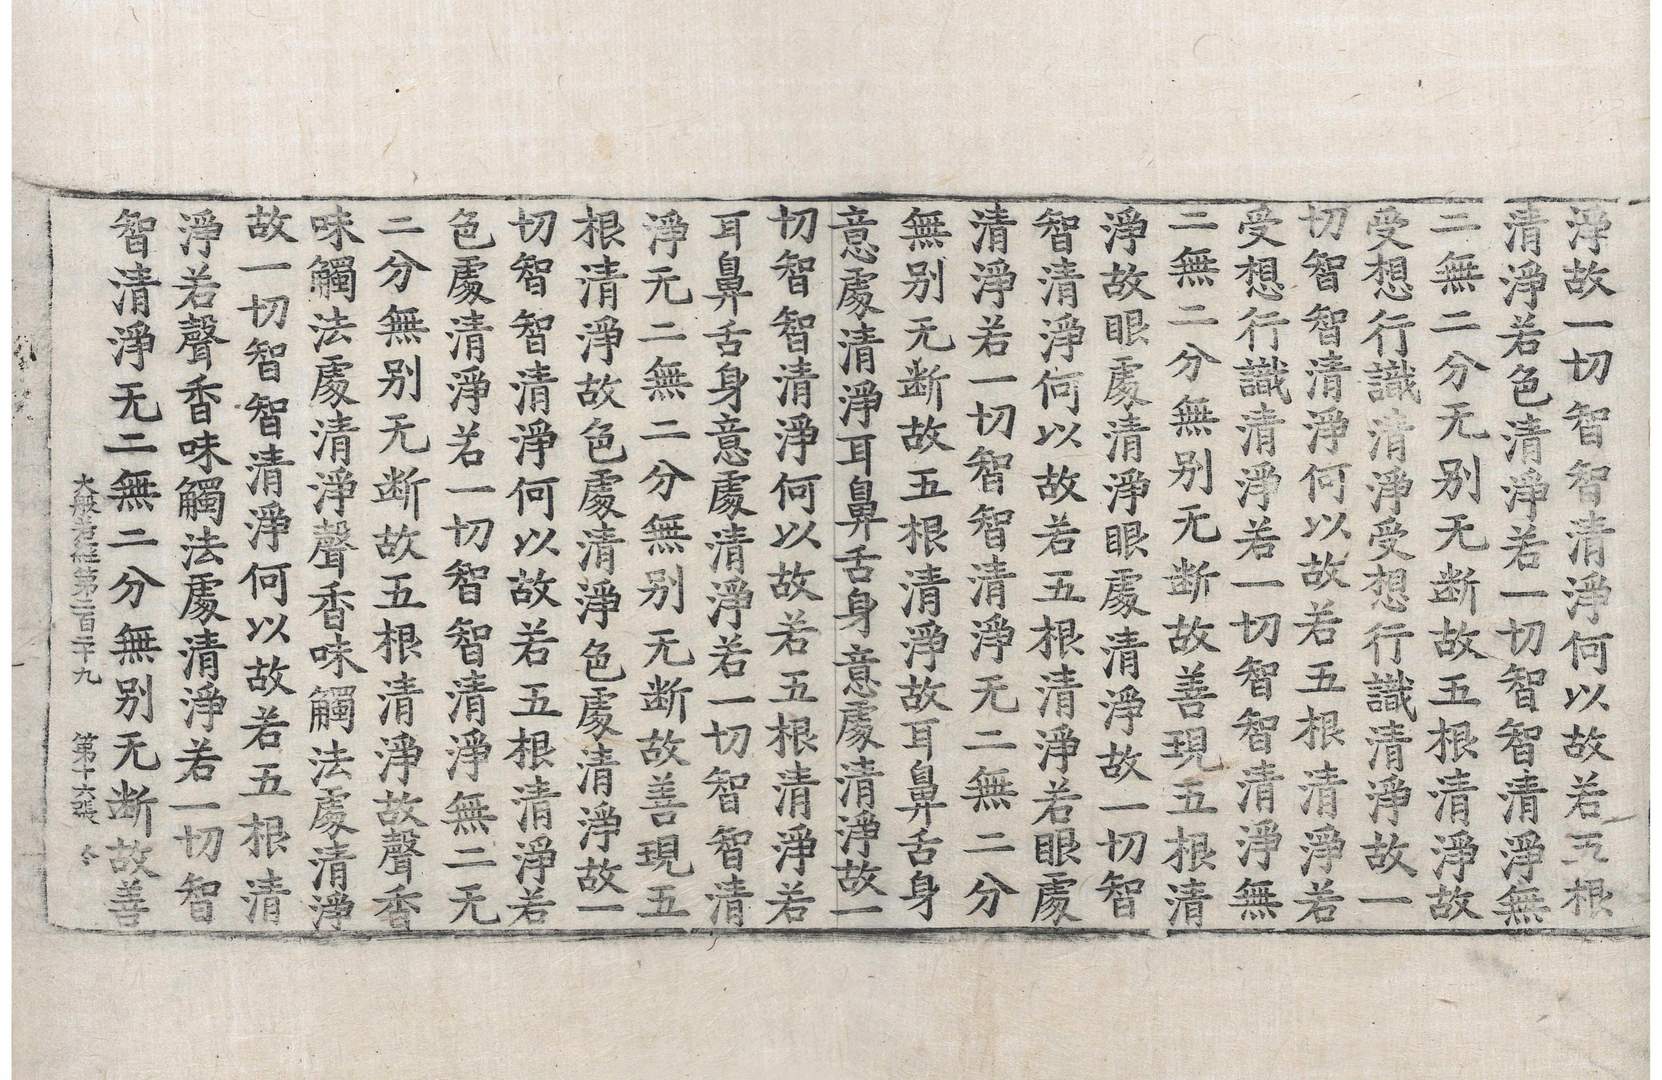 淨故一切智智清淨何以故若五根
清淨若色清淨若一切智智清淨無
二無二分无别无断故五根清淨故
受想行識清淨受想行識清淨故一
切智智清淨何以故若五根清淨若
受想行識清淨若一切智智清淨無
二無二分無别无断故善現五根清
淨故眼處清淨眼處清淨故一切智
智清淨何以故若五根清淨若眼處
清淨若一切智智清淨无二無二分
無别无断故五根清淨故耳鼻舌身
意處清淨耳鼻舌身意處清淨故一
切智智清淨何以故若五根清淨若
耳鼻舌身意處清淨若一切智智清
淨无二無二分無别无断故善現五
根清淨故色處清淨色處清淨故一
切智智清淨何以故若五根清淨若
色處清淨若一切智智清淨無二无
二分無别无断故五根清淨故聲香
味觸法處清淨聲香味觸法處清淨
故一切智智清淨何以故若五根清
淨若聲香味觸法處清淨若一切智
智清淨无二無二分無别无断故善
大般若經第二百二十九 第十六張 冬